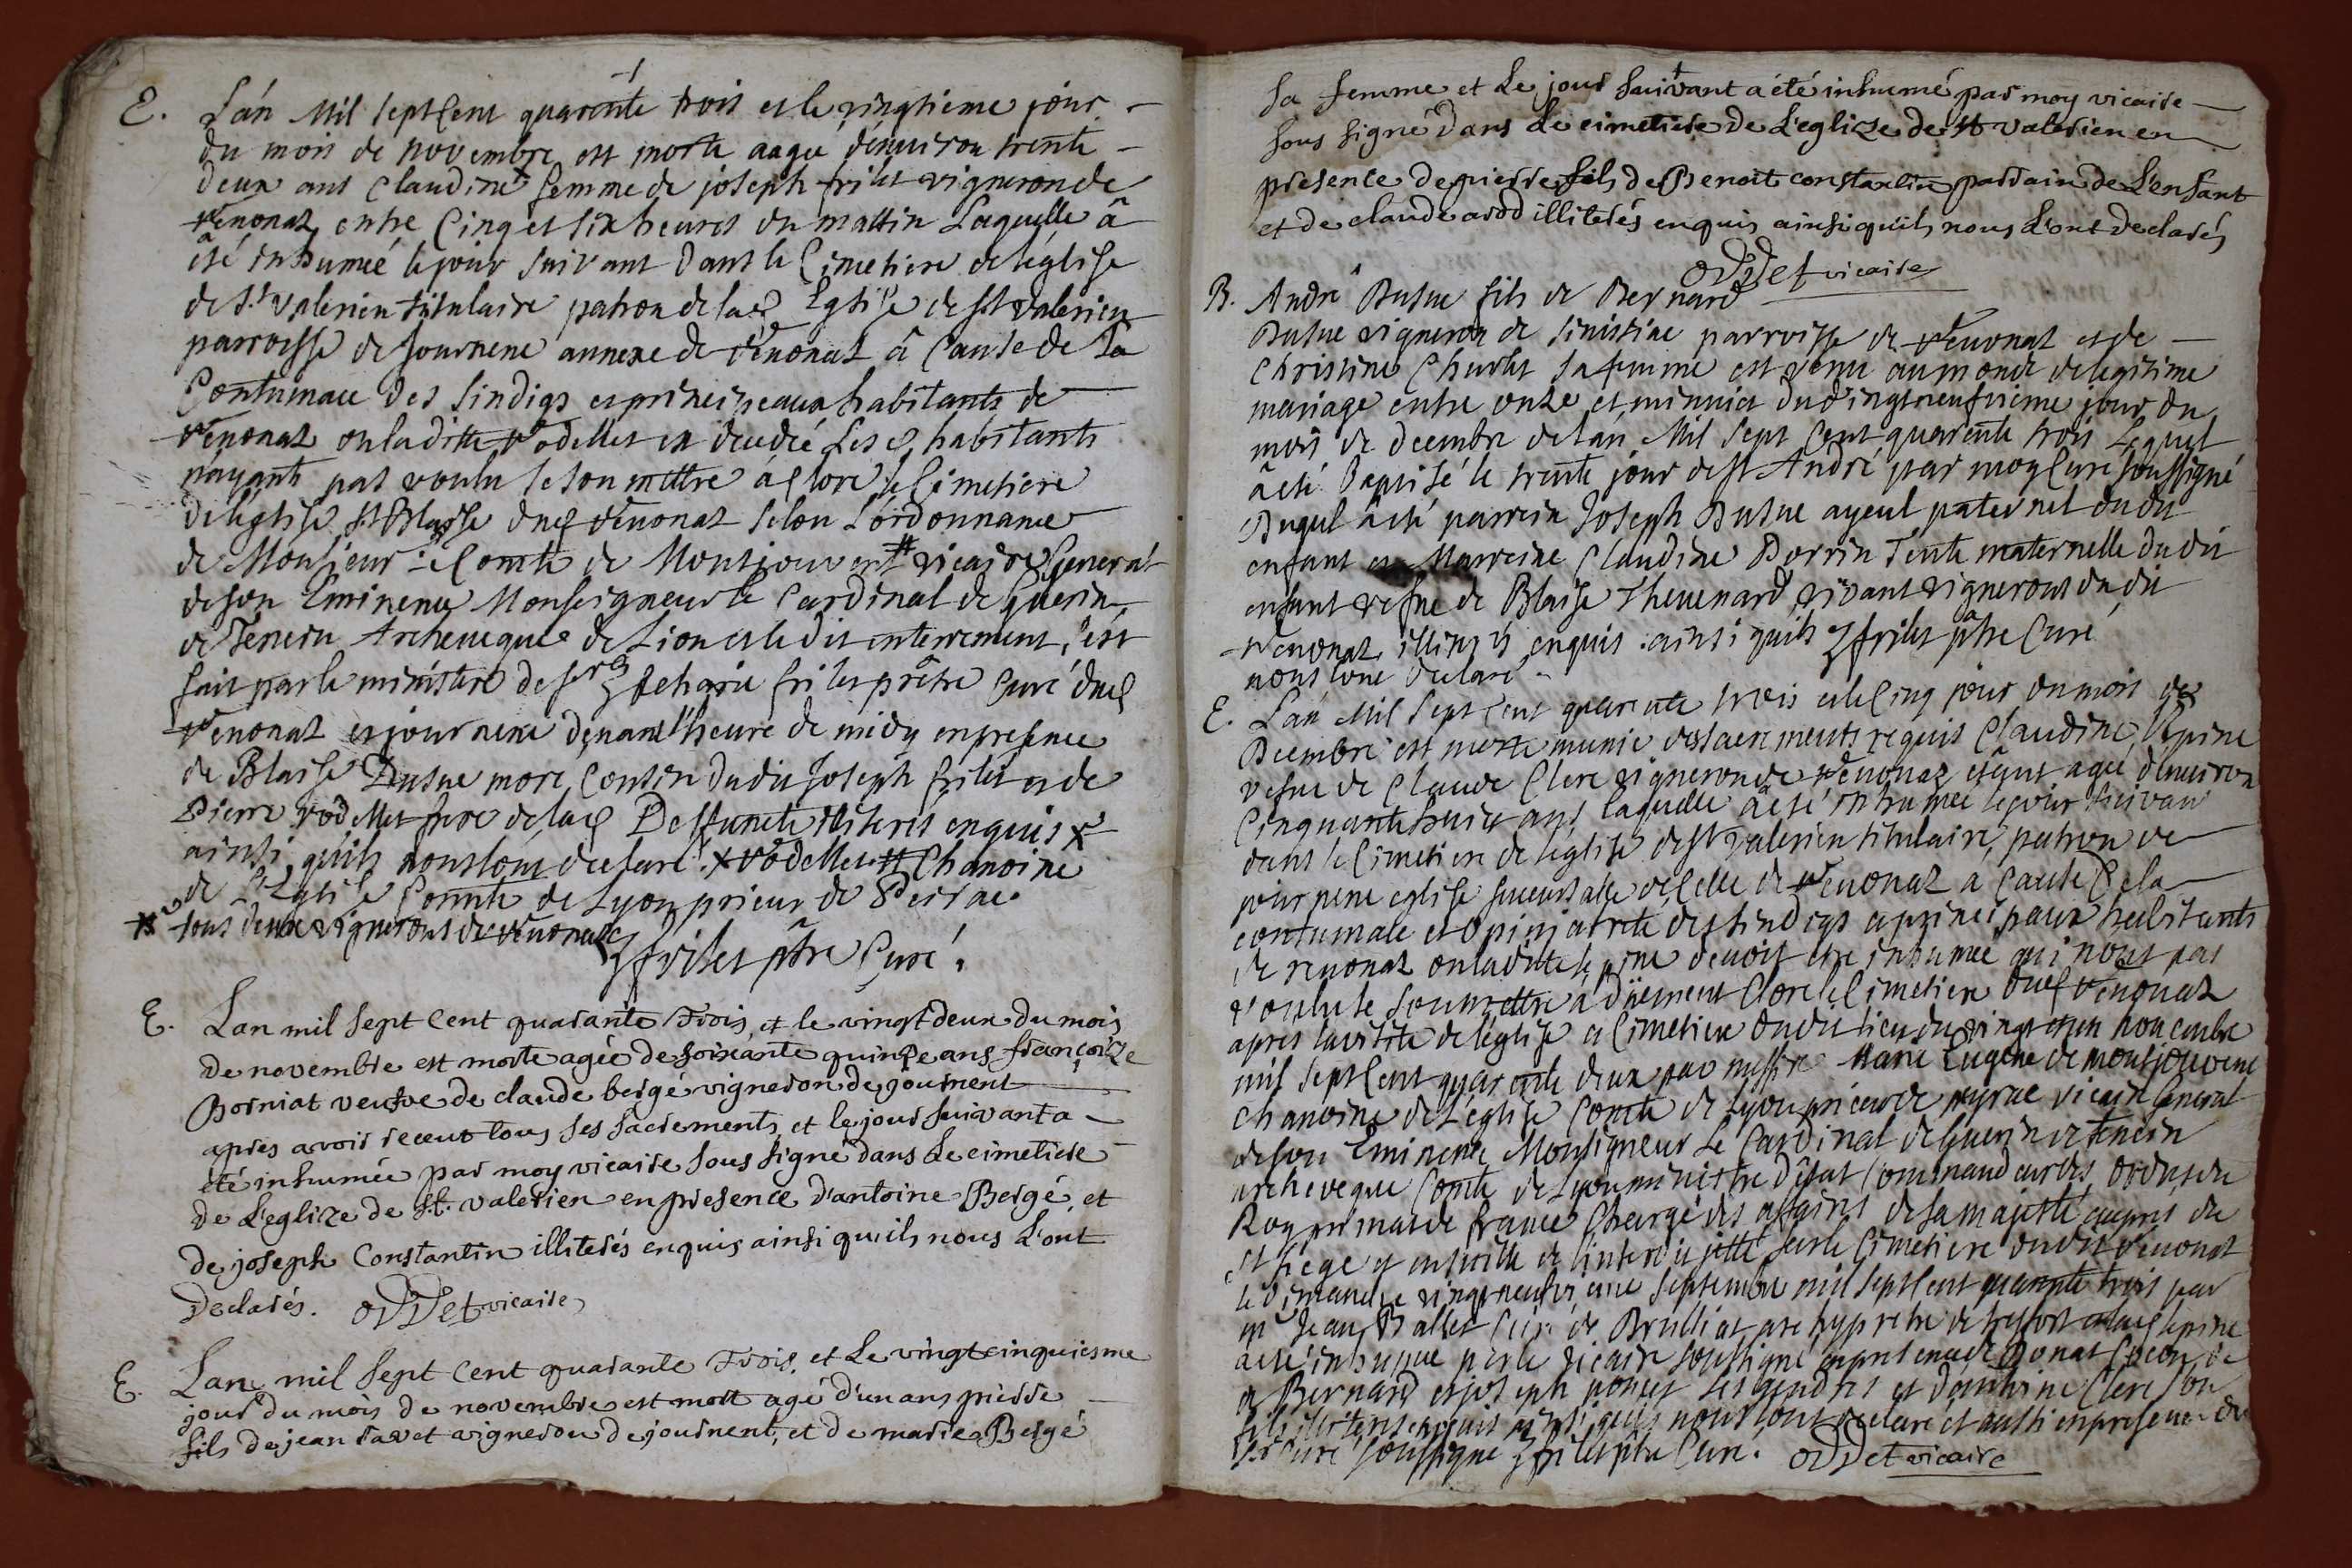 E. L'an Mil sept Cent quarente trois et le vingtieme jour
du mois de novembre est morte aagée d'environ trente
deux ans Claudine x femme de joseph frilet vigneron de
vénonat entre Cinq et six heures du mattin Laquelle â
été inhumeé le jour suivant dans le Cimetiere de léglise
de St valerien titulaire patron de lad Eglise de st valerien
parroisse de journene annexe de vénonat â Cause de la
Contumace des sindiqs et principeaux habitants de
vénonat ou laditte vòdellet est decedeé Lesd habitants
nayants pas voulu se soumettre á clore le Cimetiere
de léglise st Blaise dud vénonat selon L'ordonnance
de Monsieur le Comte de Montjouvent # vicaire General
de son Eminence Monseigneur le Cardinal de Guerin
de Tencin Archeveque de Lion et le dit enterrement, est
fait par le ministere de frilet prêtre Curé dud
vénonat et journene devant l'heure de midy en presence
de Blaise Dusue more Cousin dudit Joseph frilet et de
Pierre vòdellet frere de lad Deffuncte illiterés enquis x
ainsi quils nous l'ont declaré. x vòdellet # Chanoine
de L'Eglise Comte de Lyon prieur de Peirac
tous deux vignerons de vénonat
frilet ptre Curé.
E. Lan mil sept cent quarante Trois, et le vingt deux du mois
de novembre est morte agée de soixante quinze ans françoize
Borniat veufve de claude bergé vigneron de journent
apres avoir receut tous ses sacrements, et le jour suivant a
été inhumée par moy vicaire sous signé dans Le cimetiere
de L'eglize de St. valerien en presence d'antoine Bergé, et
de joseph Constantin illiterés enquis ainsi qu'ils nous L'ont
declarés. oddet vicaire
E. Lan mil sept cent quarante Trois, et Le vingt cinquiesme
jour du mois de novembre est mort agé d'un ans pierre
fils de jean ravet vigneron de journent, et de marie Bergé
sa femme et Le jour suivant a été inhumé par moy vicaire
sous signé dans Le cimetiere de L'eglize de st valerien en
presence de pierre fils de Benoit constantin parrain de L'enfant
et de claude avod illiterés enquis ainsi qu'ils nous L'ont declarés
oddet vicaire
B. André Dusue fils de Bernard
Dusue vigneron de parroisse de vénonat et de
Christine Churlet sa femme est venu au monde de legitime
mariage entre onze et minuict du vingtneufvieme jour du
mois de decembre de lan Mil sept Cent quarente trois Lequel
â été baptisé le trente jour de st André par moy Curé soussigné
Duquel â eté parrein Joseph Dusue ayeul paternel dudit
enfant et Marreine Claudine Dorrin Tente maternelle dudit
enfant vefue de Blaise Thevenard vivant vignerons dudit
vénonat enquis ainsi quils frilet ptre Curé
nous l'ont declaré
E. L'an Mil Sept Cent quarente trois et le Cinq jour du mois de
Decembre est morte munie des sacrements requis Claudine Lépine
vefue de Claude Clere vigneron de vénonat etant ageé d'environ
Cinquante huict ans laquelle â eté inhumeé le jour suivant
dans le Cimetiere de léglise de st valerien titulaire, patron de
journene eglise succursalle de Celle de vénonat a Cause de la
contumace et opiniatreté des sindiqs et principaux habitants
de venonat ou la ditte Lépine devoit etre inhumeé qui n'ont pas
voulu se soumettre a düement Clore le Cimetiere dud vénonat
apres la visite de léglise et Cimetiere dudit lieu du vingt et un novembre
mil sept Cent quarente deux par messire Marie Eugene de montjouvent
Chanoine de L'église Comte de Lyon prieur de peyrac vicaire General
de son Eminence Monseigneur Le Cardinal de Guerin de Tencin
archeveque Comte de Lyon ministre d'etat Commandeur des ordres du
Roy primat de france Chargé des affaires de sa majesté aupres du
st siege et ensuitte de linterdit jetté sur le Cimetiere dudit vénonat
le dimanche vingtneufvieme septembre mil sept Cent quarente trois par
mr Jean Ballet Curé de Brulliat archypretre de treffort et lad Lépine
a eté inhumeé par le vicaire soussigné en presence de Donat
et Bernard et joseph poncet ses gendres et Clere son
fils illiterés enquis ainsi quils nous l'ont declaré et aussi en presence du
sr Curé soussigné frilet ptre Curé. oddet vicaire